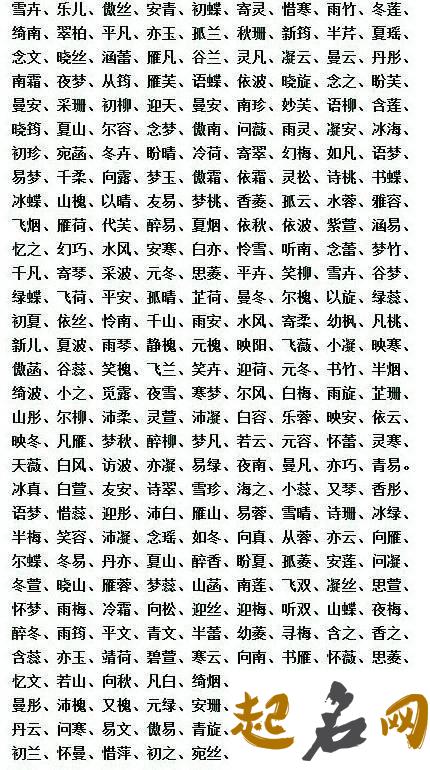 雪卉、乐儿、傲丝、安青、初蝶、寄灵、惜寒、雨竹、冬莲、
绮南、翠柏、平凡、亦玉、孤兰、秋珊、新筠、半芹、夏瑶、
念文、晓丝、涵蕾、雁凡、谷兰、灵凡、凝云、曼云、丹彤、
南霜、夜梦、从筠、雁芙、语蝶、依波、晓旋、念之、盼芙、
曼安、采珊、初柳、迎天、曼安、南珍、妙芙、语柳、含莲、
晓筠、夏山、尔容、念梦、傲南、问薇、雨灵、凝安、冰海、
初珍、宛菡、冬卉、盼晴、冷荷、寄翠、幻梅、如凡、语梦、
易梦、千柔、向露、梦玉、傲霜、依霜、灵松、诗桃、书蝶、
冰蝶、山槐、以晴、友易、梦桃、香菱、孤云、水蓉、雅容、
飞烟、雁荷、代芙、醉易、夏烟、依秋、依波、紫萱、涵易、
忆之、幻巧、水风、安寒、白亦、怜雪、听南、念蕾、梦竹、
千凡、寄琴、采波、元冬、思菱、平卉、笑柳、雪卉、谷梦、
绿蝶、飞荷、平安、孤晴、芷荷、曼冬、尔槐、以旋、绿蕊、
初夏、依丝、怜南、千山、雨安、水风、寄柔、幼枫、凡桃、
新儿、夏波、雨琴、静槐、元槐、映阳、飞薇、小凝、映寒、
傲菡、谷蕊、笑槐、飞兰、笑卉、迎荷、元冬、书竹、半烟、
绮波、小之、觅露、夜雪、寒梦、尔风、白梅、雨旋、芷珊、
山彤、尔柳、沛柔、灵萱、沛凝、白容、乐蓉、映安、依云、
映冬、凡雁、梦秋、醉柳、梦凡、若云、元容、怀蕾、灵寒、
天薇、白风、访波、亦凝、易绿、夜南、曼凡、亦巧、青易。
冰真、白萱、友安、诗翠、雪珍、海之、小蕊、又琴、香彤、
语梦、惜蕊、迎彤、沛白、雁山、易蓉、雪晴、诗珊、冰绿、
半梅、笑容、沛凝、念瑶、如冬、向真、从蓉、亦云、向雁、
尔蝶、冬易、丹亦、夏山、醉香、盼夏、孤菱、安莲、问凝、
冬萱、晓山、雁蓉、梦蕊、山菡、南莲、飞双、凝丝、思萱、
怀梦、雨梅、冷霜、向松、迎丝、迎梅、听双、山蝶、夜梅、
醉冬、雨筠、平文、青文、半蕾、幼菱、寻梅、含之、香之、
含蕊、亦玉、靖荷、碧萱、寒云、向南、书雁、怀薇、思菱、
忆文、若山、向秋、凡白、绮烟、
曼彤、沛槐、又槐、元绿、安珊、
丹云、问寒、易文、傲易、青旋、
初兰、怀曼、惜萍、初之、宛丝、
起名网